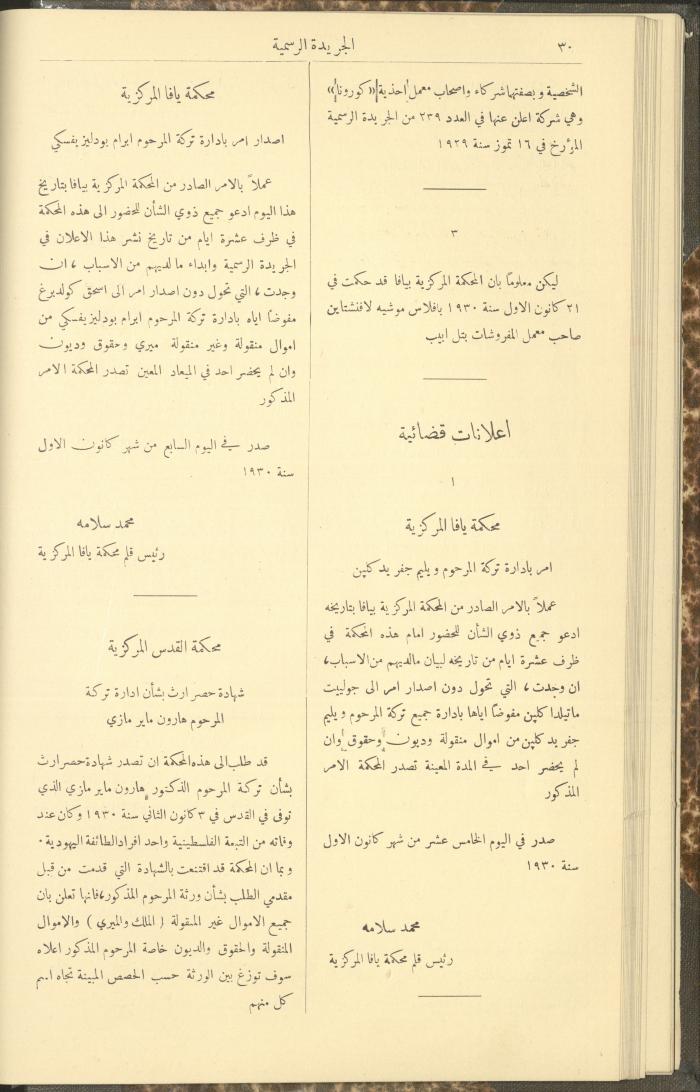 ٣٠
الجريدة الرسمية
الشخصية وبصفتها شركاء واصحاب معمل احذية «كورونا»
وهي شركة اعلن عنها في العدد ٢٣٩ من الجريدة الرسمية
المؤرخ في ١٦ تموز سنة ١٩٢٩
٣
ليكن معلومًا بان المحكمة المركزية بيافا قد حكمت في
٢١ كانون الاول سنة ١٩٣٠ بافلاس موشيه لافنشتاين
صاحب معمل المفروشات بتل ابيب
اعلانات قضائية
١
محكمة يافا المركزية
امر بادارة تركة المرحوم ويليم جفريد كلين
عملاً بالامر الصادر من المحكمة المركزية بيافا بتاريخه
ادعو جميع ذوي الشأن للحضور امام هذه المحكمة في
ظرف عشرة ايام من تاريخه لبيان مالديهم من الاسباب،
ان وجدت، التي تحول دون اصدار امر الى جولييت
ماتيلدا كلين مفوضًا اياها بادارة جميع تركة المرحوم ويليم
جفريد كلين من اموال منقولة وديون وحقوق وان
لم يحضر احد في المدة المعينة تصدر المحكمة الامر
المذكور
صدر في اليوم الخامس عشر من شهر كانون الاول
سنة ١٩٣٠
محمد سلامه
رئيس قلم محكمة يافا المركزية
محكمة يافا المركزية
اصدار امر بادارة تركة المرحوم ابرام بودليزيفسكي
عملاً بالامر الصادر من المحكمة المركزية بيافا بتاريخ
هذا اليوم ادعو جميع ذوي الشأن للحضور الى هذه المحكمة
في ظرف عشرة ايام من تاريخ نشر هذا الاعلان في
الجريدة الرسمية وابداء ما لديهم من الاسباب ، ان
وجدت ، التي تحول دون اصدار امر الى اسحق كولدبرغ
مفوضًا اياه بادارة تركة المرحوم ابرام بودليزيفسكي من
اموال منقولة وغير منقولة ميري وحقوق وديون
وان لم يحضر احد في الميعاد المعين تصدر المحكمة الامر
المذكور
صدر في اليوم السابع من شهر كانون الاول
سنة ١٩٣٠
محمد سلامه
رئيس قلم محكمة يافا المركزية
محكمة القدس المركزية
شهادة حصر ارث بشأن ادارة تركة
المرحوم هارون ماير مازي
قد طلب الى هذه المحكمة ان تصدر شهادة حصر ارث
بشأن تركة المرحوم الدكتور هارون ماير مازي الذي
توفى في القدس في ٣ كانون الثاني سنة ١٩٣٠ وكان عند
وفاته من التبعة الفلسطينية واحد افراد الطائفة اليهودية ·
وبما ان المحكمة قد اقتنعت بالشهادة التي قدمت من قبل
مقدمي الطلب بشأن ورثة المرحوم المذكور، فانها تعلن بان
جميع الاموال غير المنقولة ( الملك والميري ) والاموال
المنقولة والحقوق والديون خاصة المرحوم المذكور اعلاه
سوف توزغ بين الورثة حسب الحصص المبينة تجاه اسم
كل منهم